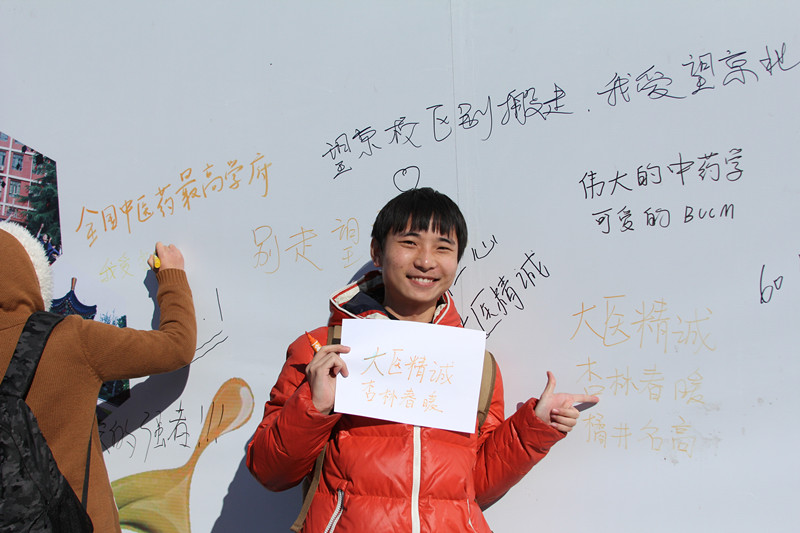 望京校区别搬走.我爱望京北
全国中医药最高学府
别走望
伟大的中药学
可爱的BUCM
我爱
心
医精诚
60
大医精诚
杏林春暖
橘井名高
大医精诚
杏林春暖
的强者!!!